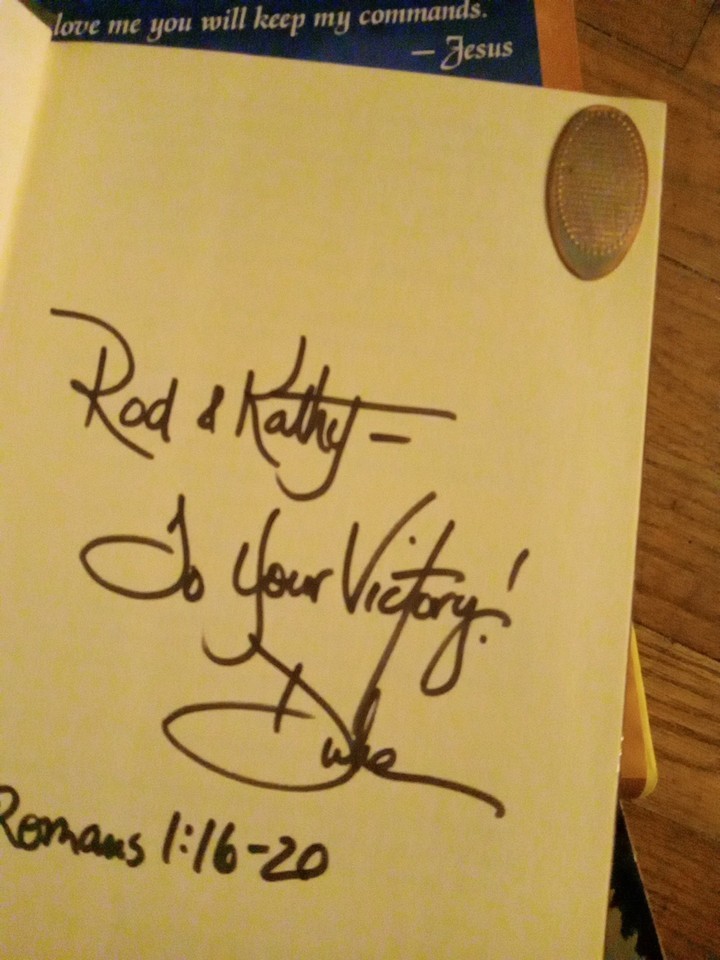 love me you will keep my commands.
– Jesus
Rod & Kathy –
To Your Victory!
Duke
Romans 1:16-20